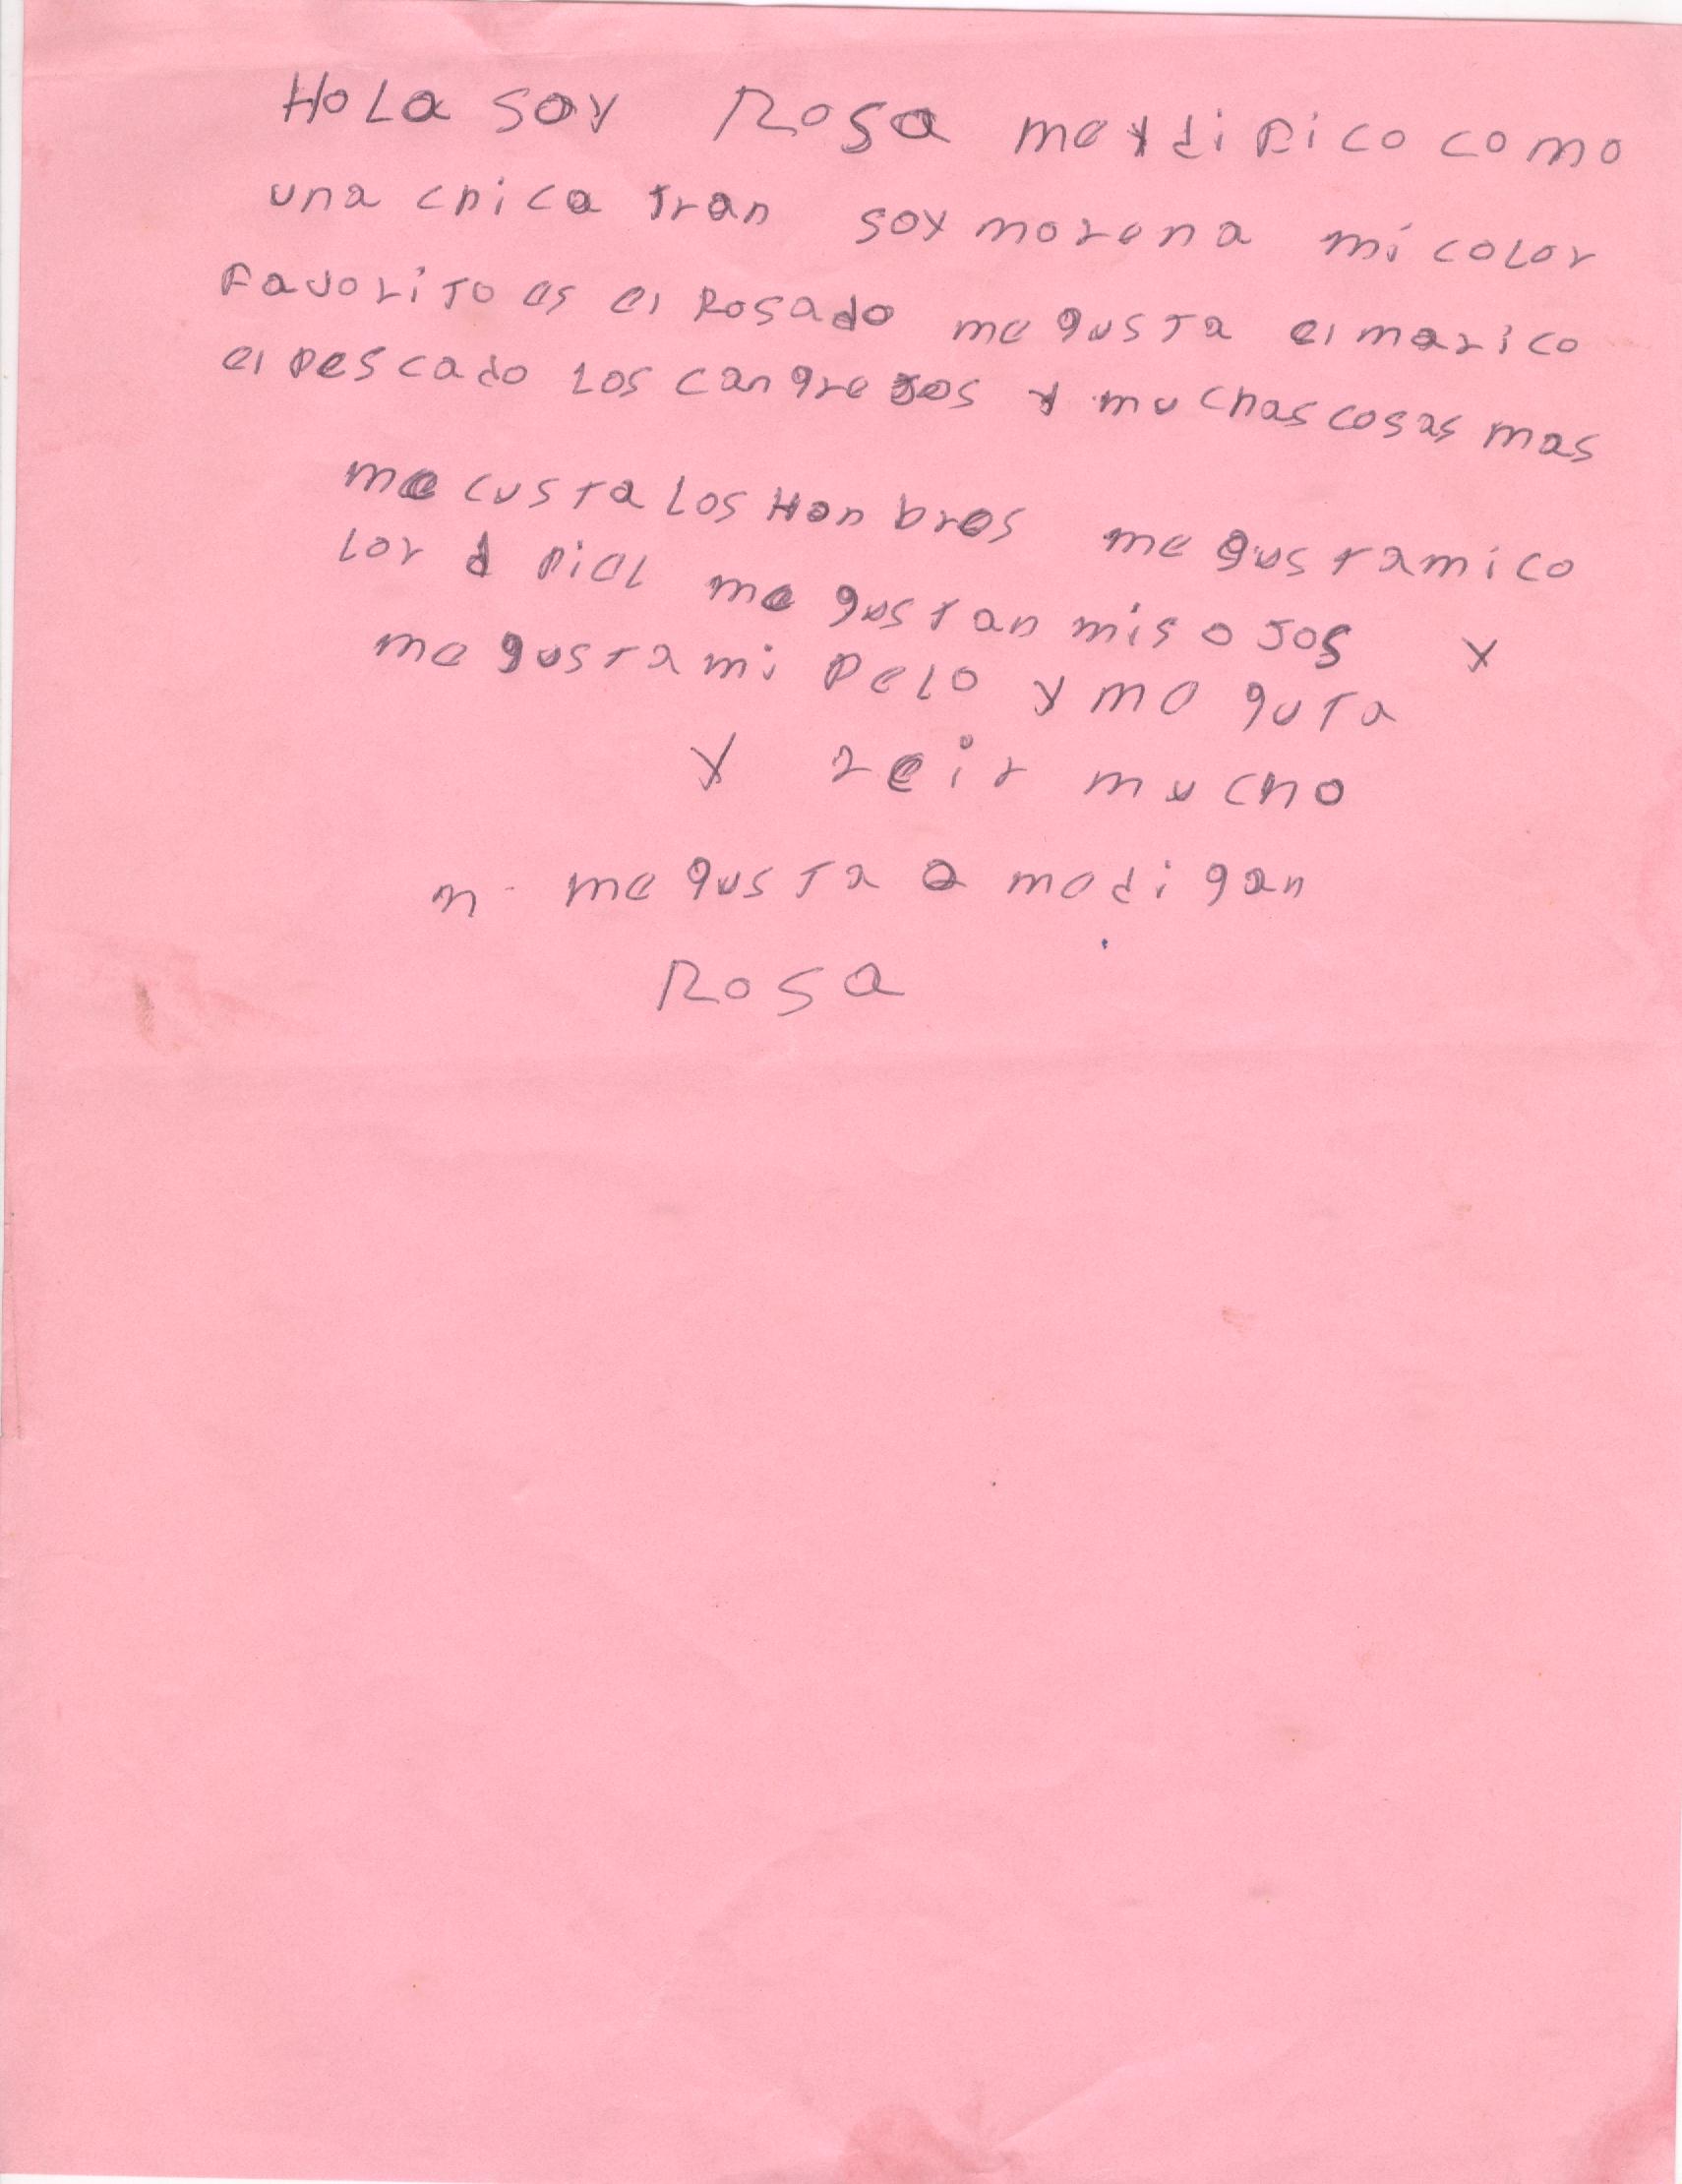 Hola soy Rosa meydifico como
una chica tran soy morena mi color
favorito es el Rosado me gusta el marico
el pescado los cangrejos y muchas cosas mas
me custa los Honbres me gusta mico
lor d piel me gustan mis ojos y
me gusta mi pelo y me guta
y reir mucho
n me gusta q me digan
Rosa